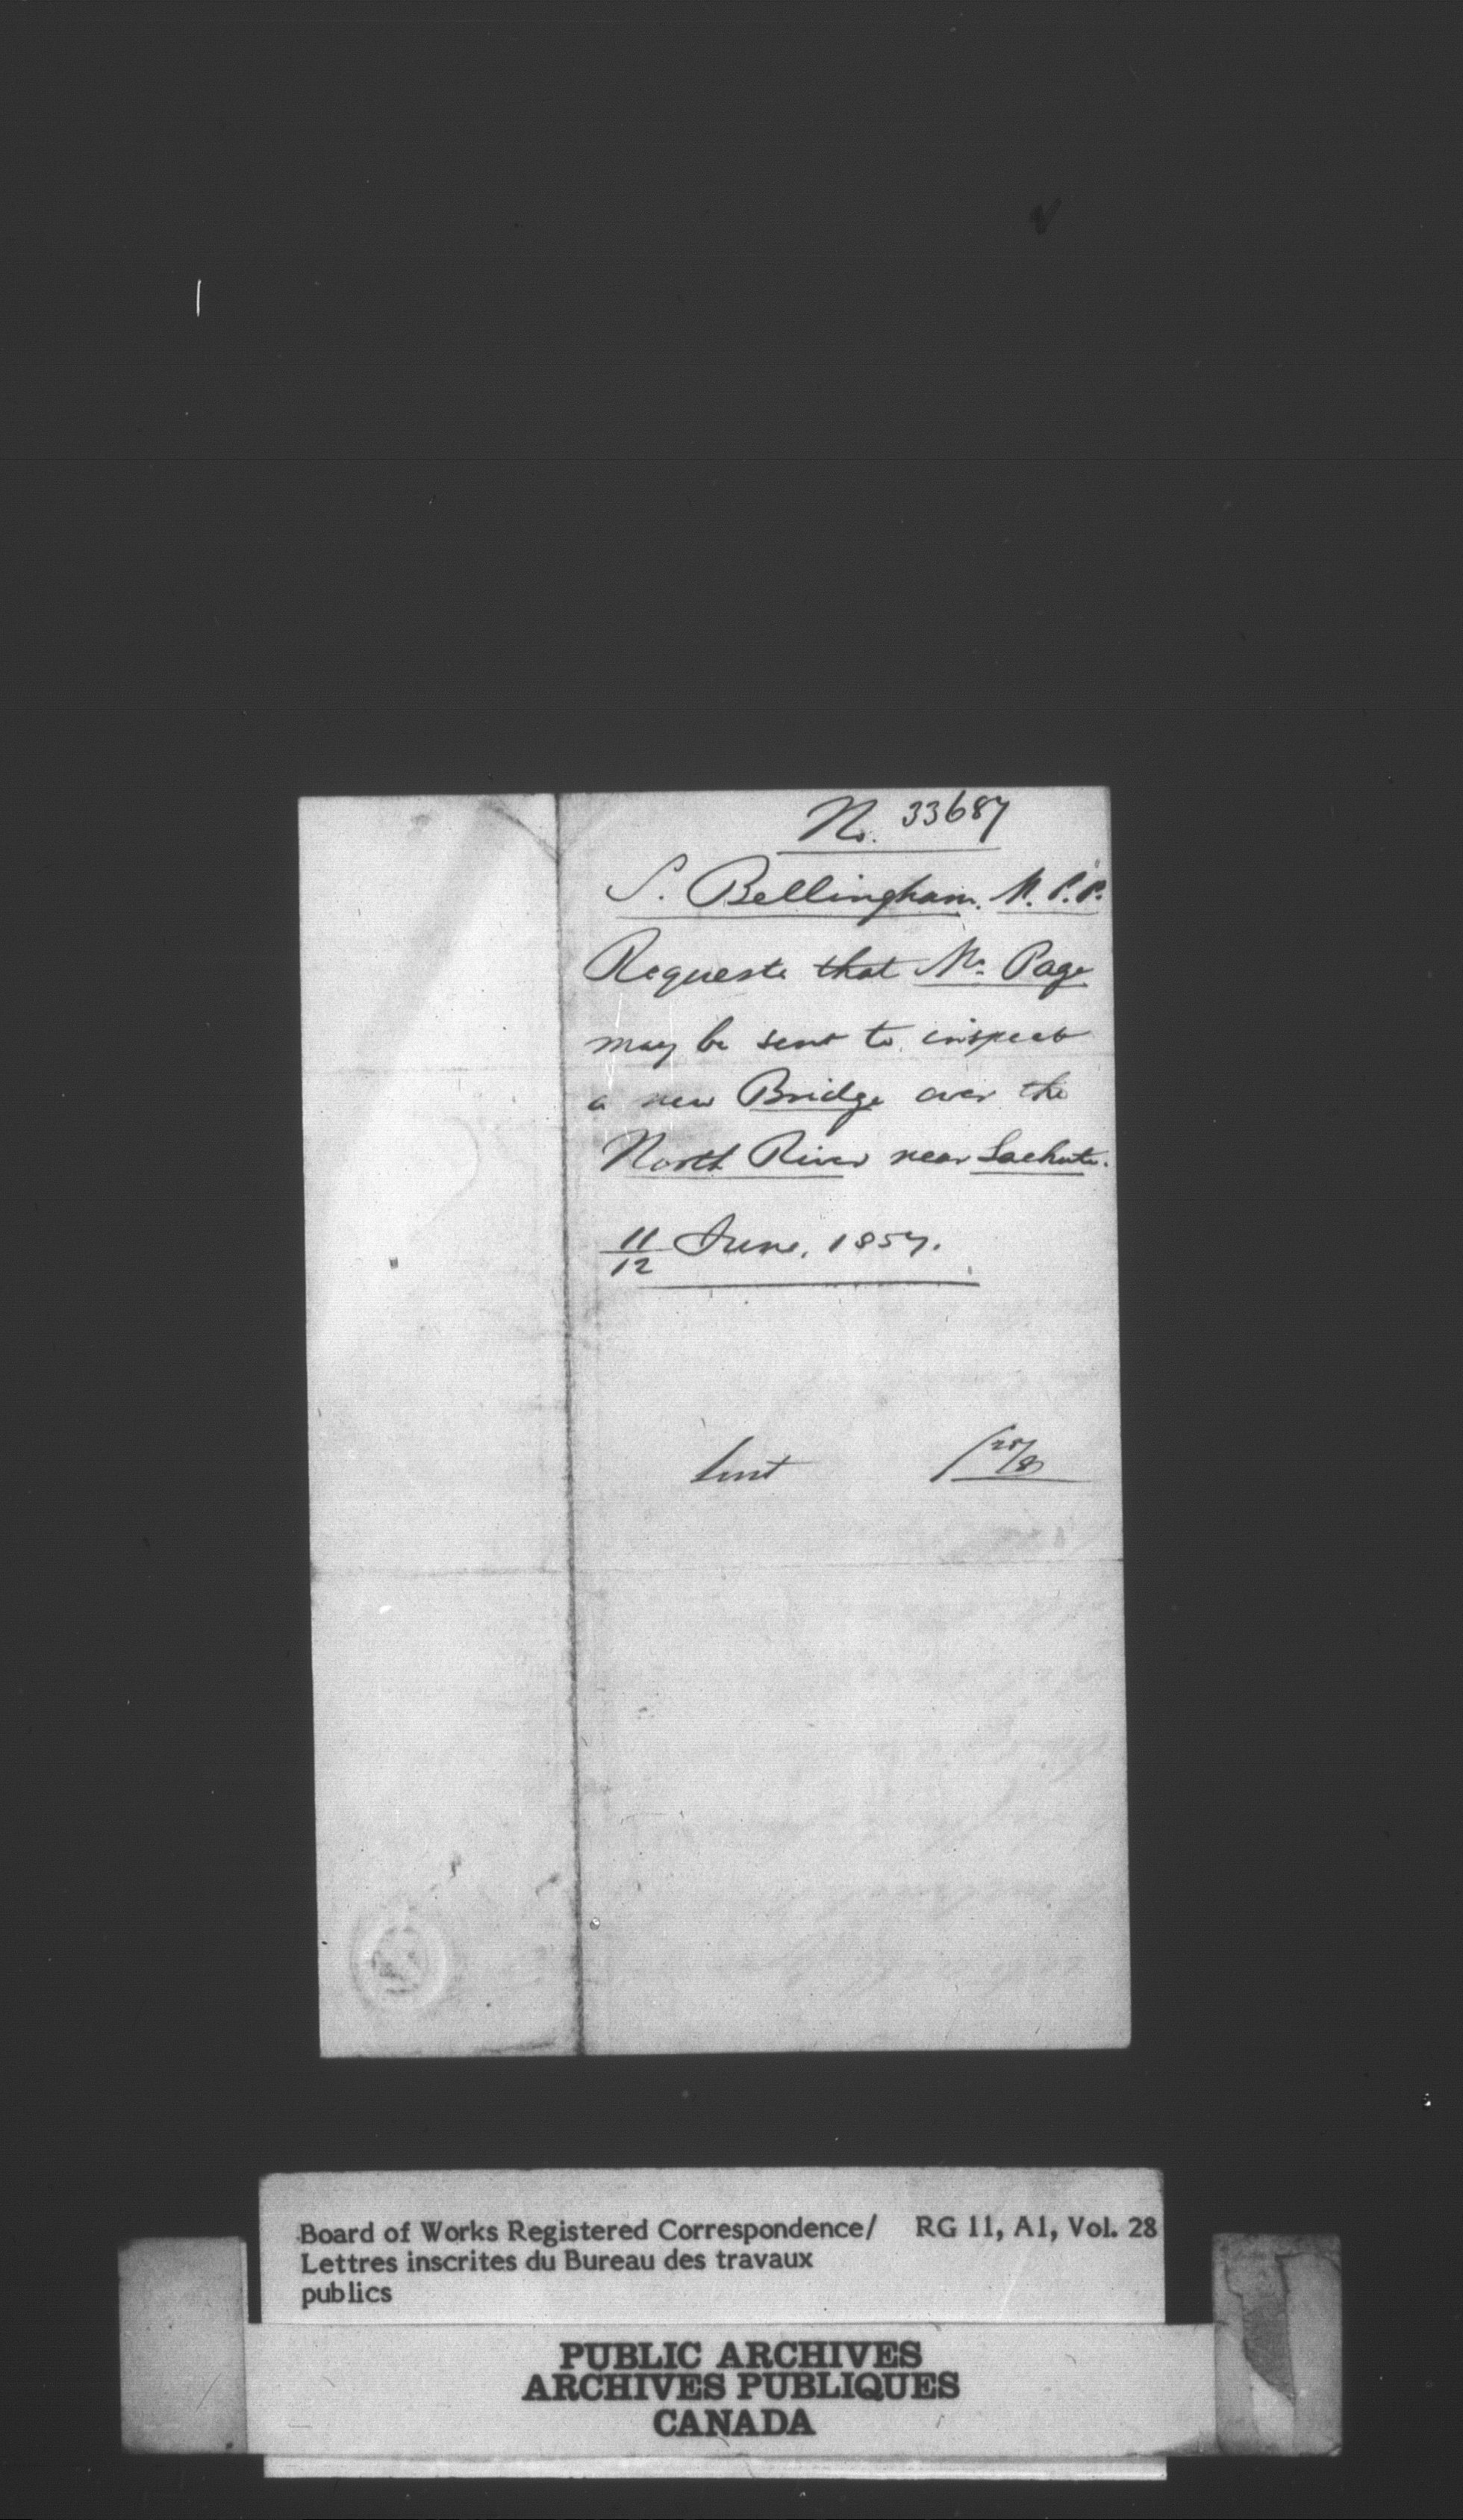 No. 33687
S. Bellingham. M.P.P.
Requests that Mr. Page
may be sent to inspect
a new Bridge over the
North River near Lachute.
11/12 June, 1857.
Board of Works Registered Correspondence/ RG 11, A1, Vol. 28
Lettres inscrites du Bureau des travaux
publics
PUBLIC ARCHIVES
ARCHIVES PUBLIQUES
CANADA